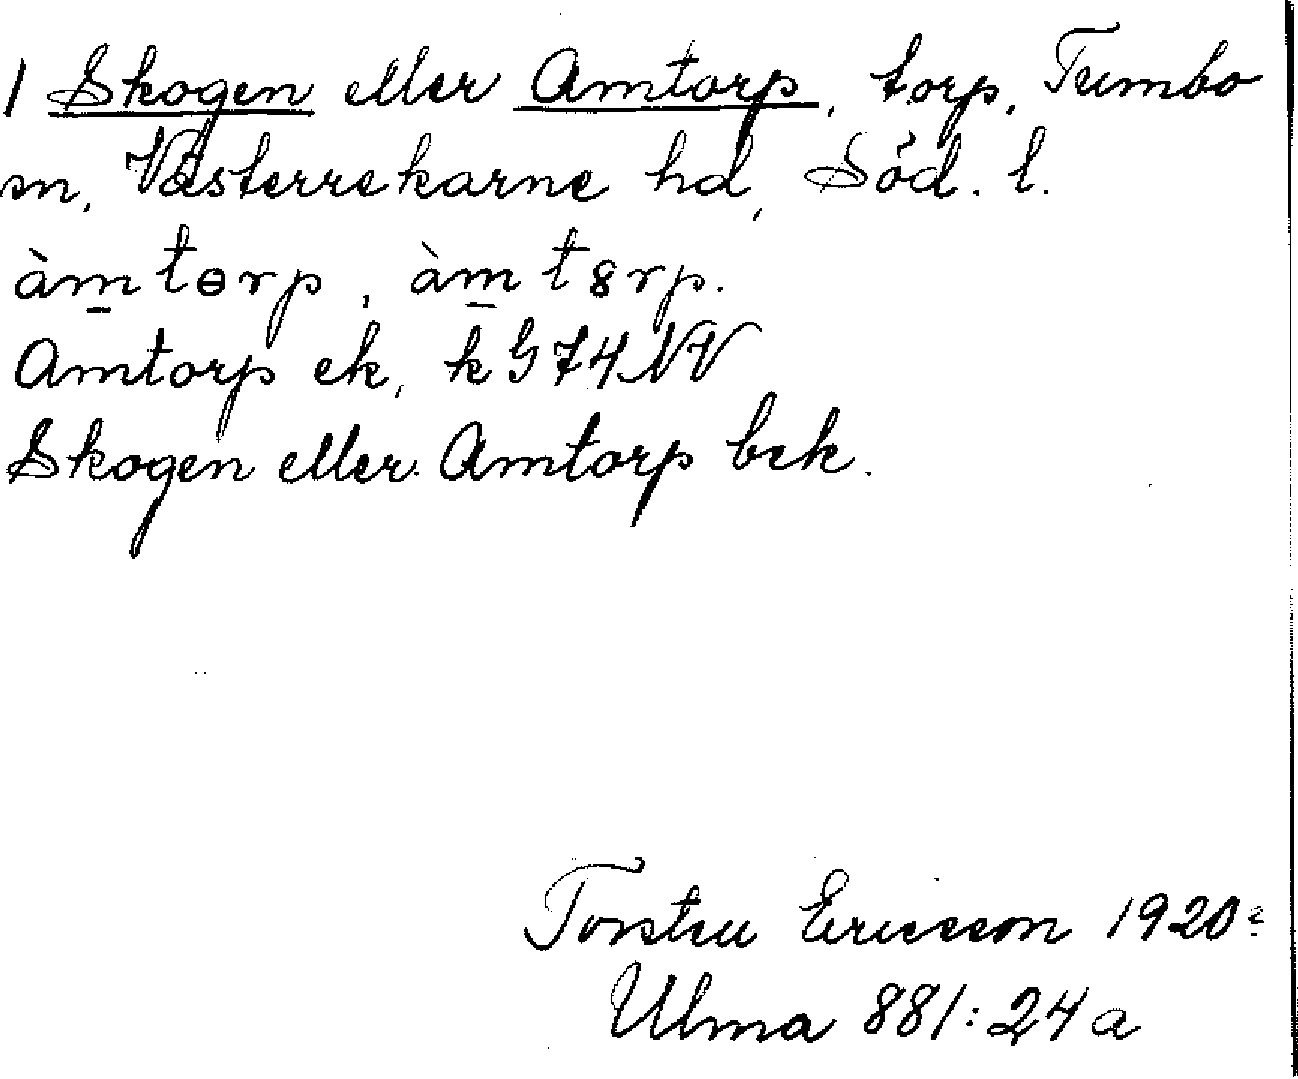 1 Skogen eller Amtorp, torp, Tumbo
sn, Västerrekarne hd, Söd. l.
àm̲tɵrp, àm̲t8rp.
Amtorp ek, k G 74 NV
Skogen eller Amtorp bek.
Torsten Ericsson 1920
Ulma 881:24a